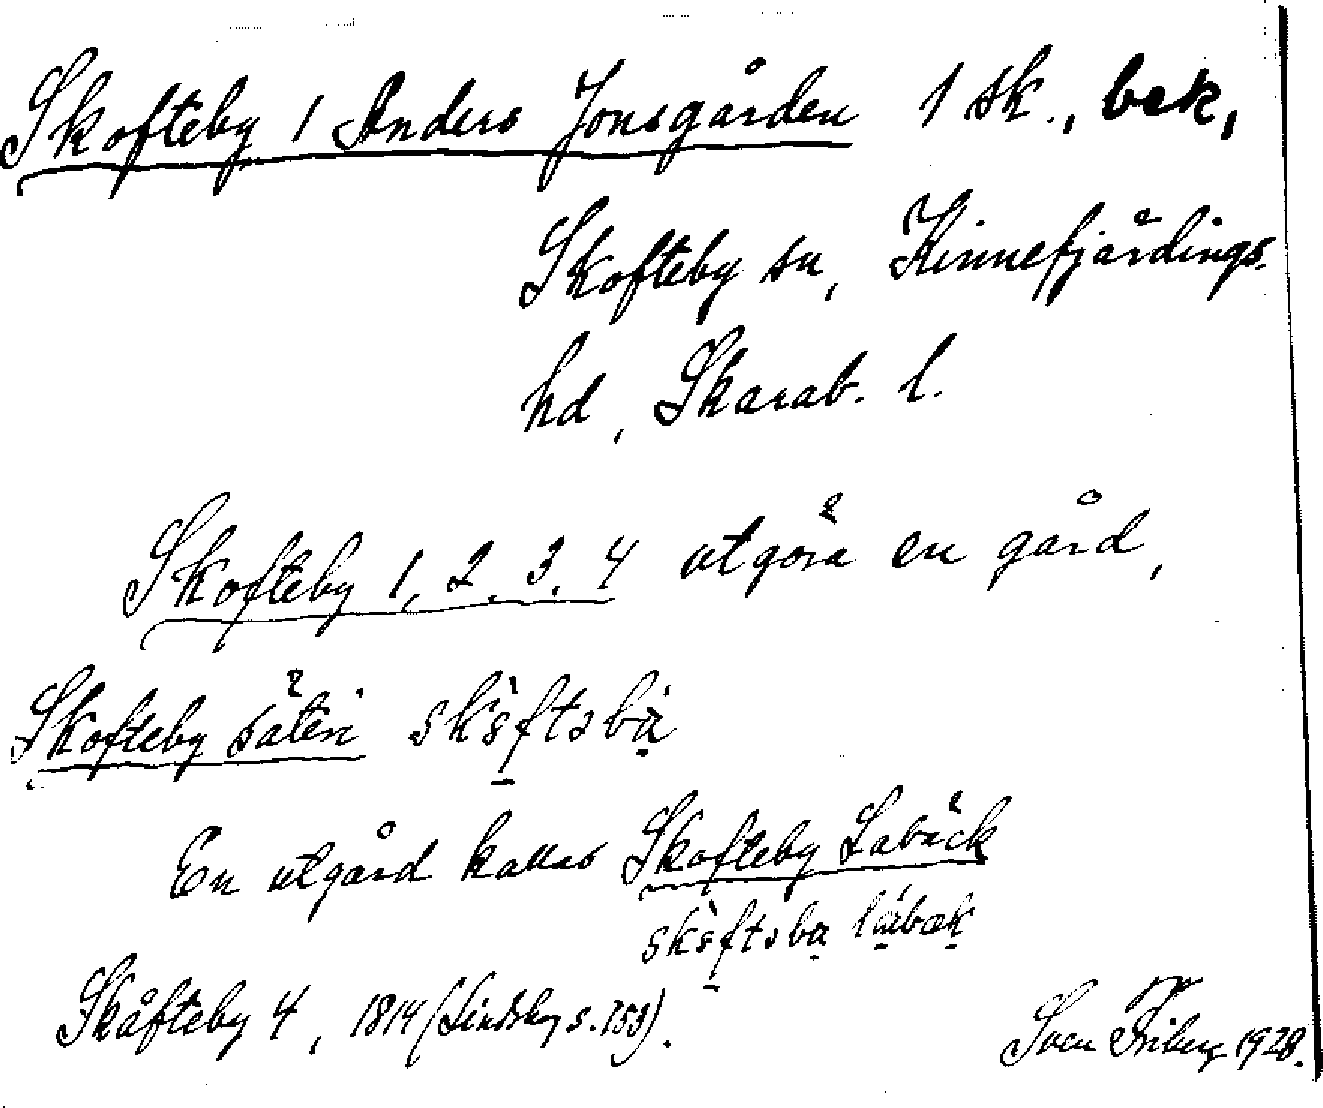 Skofteby 1 Anders Jonsgården 1 sk., bek,
Skofteby sn, Kinnefjärdings
hd, Skarab. l.
Skofteby 1, 2. 3. 4 utgöra en gård,
Skofteby säteri
En utgård kallas Skofteby Labäck
Skåfteby 4, 1814 (Lindskog s. 153).
Sven Friberg 1928.